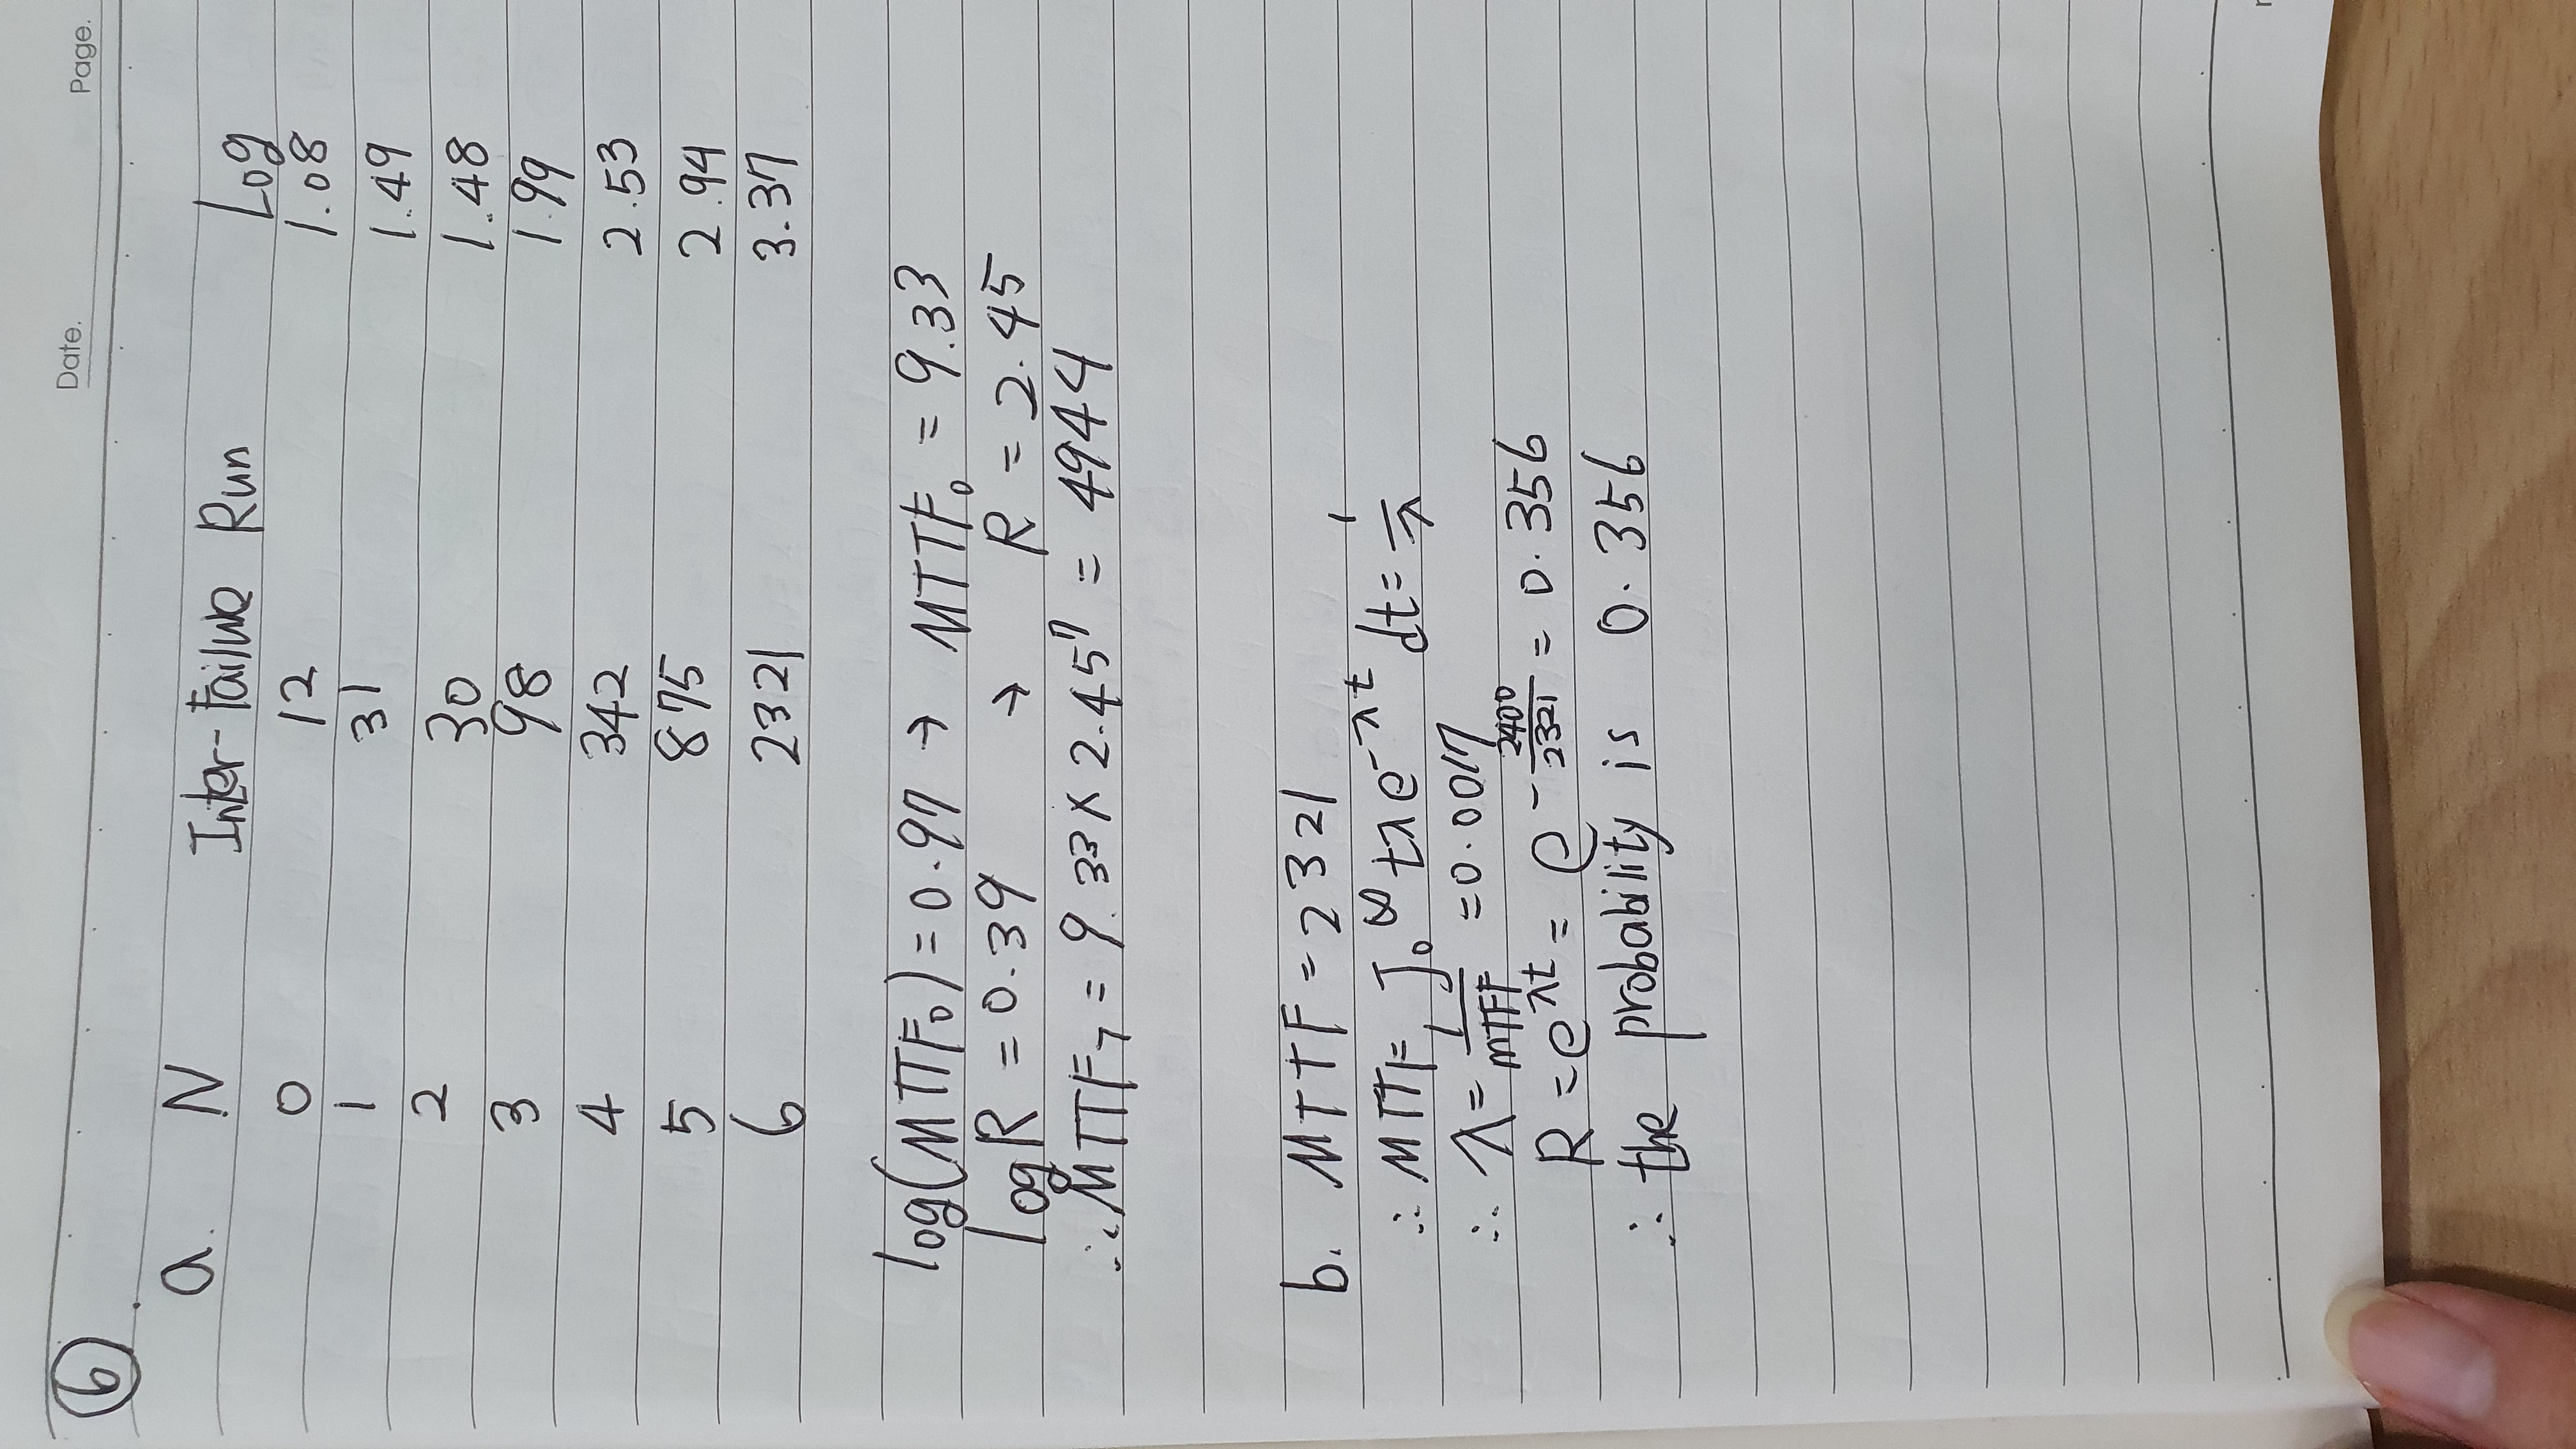 Date.
Page.
⑥.
a. N Inter-Failure Run Log
0 12 1.08
1 31 1.49
2 30 1.48
3 98 1.99
4 342 2.53
5 875 2.94
6 2321 3.37
log(MTTF₀) = 0.97 → MTTF₀ = 9.33
log R = 0.39 → R = 2.45
∴ MTTF₇ = 9.33 × 2.45⁷ = 4944
b. MTTF = 2321
∴ MTTF, ∫₀^∞ tλe^(-λt) dt = 1/λ
∴ λ = 1/MTFF = 0.0017
R = e^(λt) = e^(-2400/2321) = 0.356
∴ the probability is 0.356